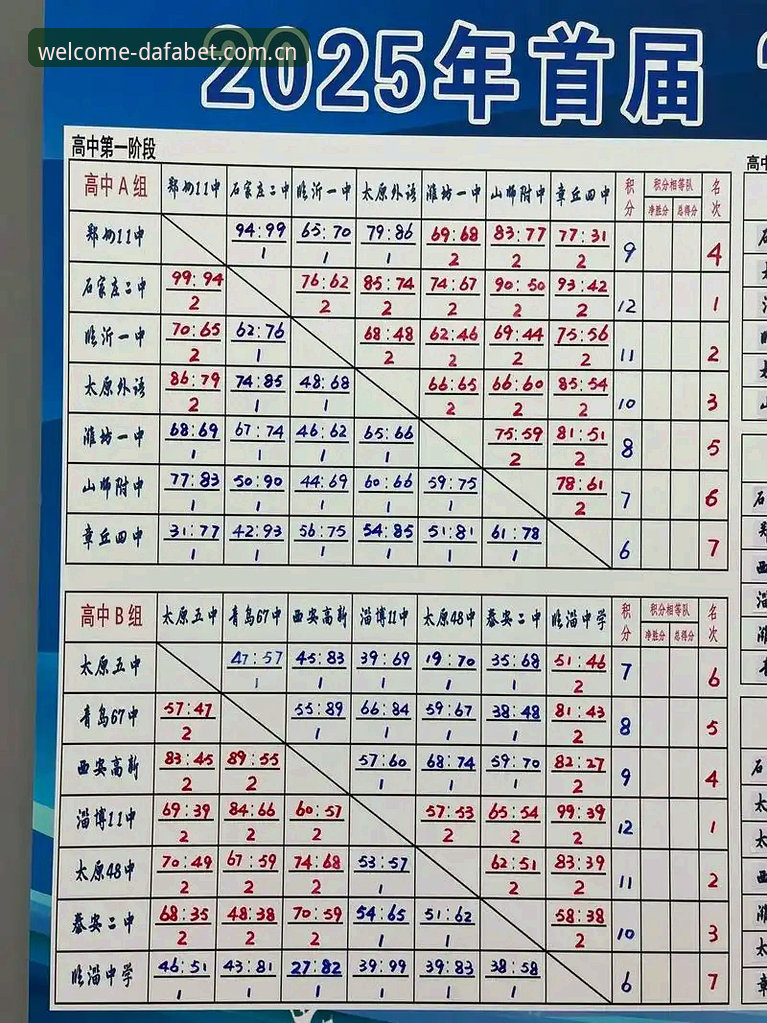 welcome-dafabet.com.cn
2025年首届
高中第一阶段
高中
高中A组 郑州11中 石家庄二中 临沂一中 太原外语 潍坊一中 山师附中 章丘四中 积分 积分相等队 名次
净胜分 总得分
郑州11中 94:99 65:70 79:86 69:68 83:77 77:31 9 4
1 1 1 2 2 2
石家庄二中 99:94 76:62 85:74 74:67 90:50 93:42 12 1
2 2 2 2 2 2
临沂一中 70:65 62:76 68:48 62:46 69:44 75:56 11 2
2 1 2 2 2 2
太原外语 86:79 74:85 48:68 66:65 66:60 85:54 10 3
2 1 1 2 2 2
潍坊一中 68:69 67:74 46:62 65:66 75:59 81:51 8 5
1 1 1 1 2 2
山师附中 77:83 50:90 44:69 60:66 59:75 78:61 7 6
1 1 1 1 1 2
章丘四中 31:77 42:93 56:75 54:85 51:81 61:78 6 7
1 1 1 1 1 1
高中B组 太原五中 青岛67中 西安高新 淄博11中 太原48中 泰安二中 临淄中学 积分 积分相等队 名次
净胜分 总得分
太原五中 47:57 45:83 39:69 19:70 35:68 51:46 7 6
1 1 1 1 1 2
青岛67中 57:47 55:89 66:84 59:67 38:48 81:43 8 5
2 1 1 1 1 2
西安高新 83:45 89:55 57:60 68:74 59:70 82:27 9 4
2 2 1 1 1 2
淄博11中 69:39 84:66 60:57 57:53 65:54 99:39 12 1
2 2 2 2 2 2
太原48中 70:49 67:59 74:68 53:57 62:51 83:39 11 2
2 2 2 1 2 2
泰安二中 68:35 48:38 70:59 54:65 51:62 58:38 10 3
2 2 2 1 1 2
临淄中学 46:51 43:81 27:82 39:99 39:83 38:58 6 7
1 1 1 1 1 1